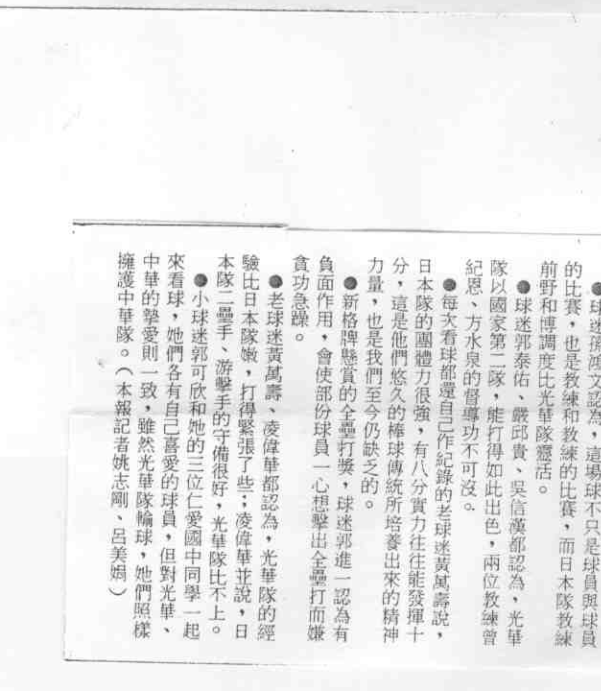 ●球迷孫鴻文認為，這場球不只是球員與球員
的比賽，也是教練和教練的比賽，而日本隊教練
前野和博調度比光華隊靈活。
●球迷郭泰佑、嚴邱貴、吳信漢都認為，光華
隊以國家第二隊，能打得如此出色，兩位教練曾
紀恩、方水泉的督導功不可沒。
●每次看球都還自己作紀錄的老球迷黃萬壽說，
日本隊的團體力很強，有八分實力往往能發揮十
分，這是他們悠久的棒球傳統所培養出來的精神
力量，也是我們至今仍缺乏的。
●新格牌懸賞的全壘打獎，球迷郭進一認為有
負面作用，會使部份球員一心想擊出全壘打而嫌
貪功急躁。
●老球迷黃萬壽、凌偉華都認為，光華隊的經
驗比日本隊嫩，打得緊張了些；凌偉華並說，日
本隊二壘手、游擊手的守備很好，光華隊比不上。
●小球迷郭可欣和她的三位仁愛國中同學一起
來看球，她們各有自己喜愛的球員，但對光華、
中華的摯愛則一致，雖然光華隊輸球，她們照樣
擁護中華隊。（本報記者姚志剛、呂美娟）